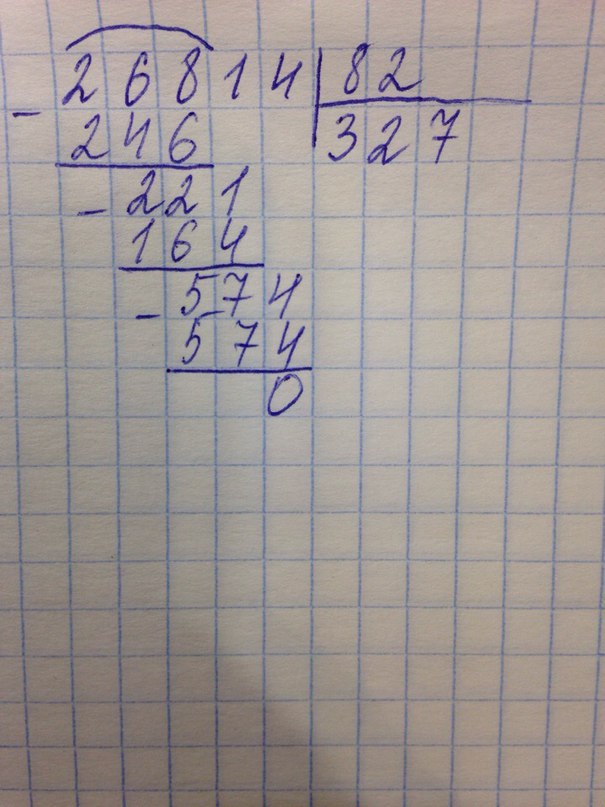 26814 82
- 246 327
- 221
164
- 574
574
0